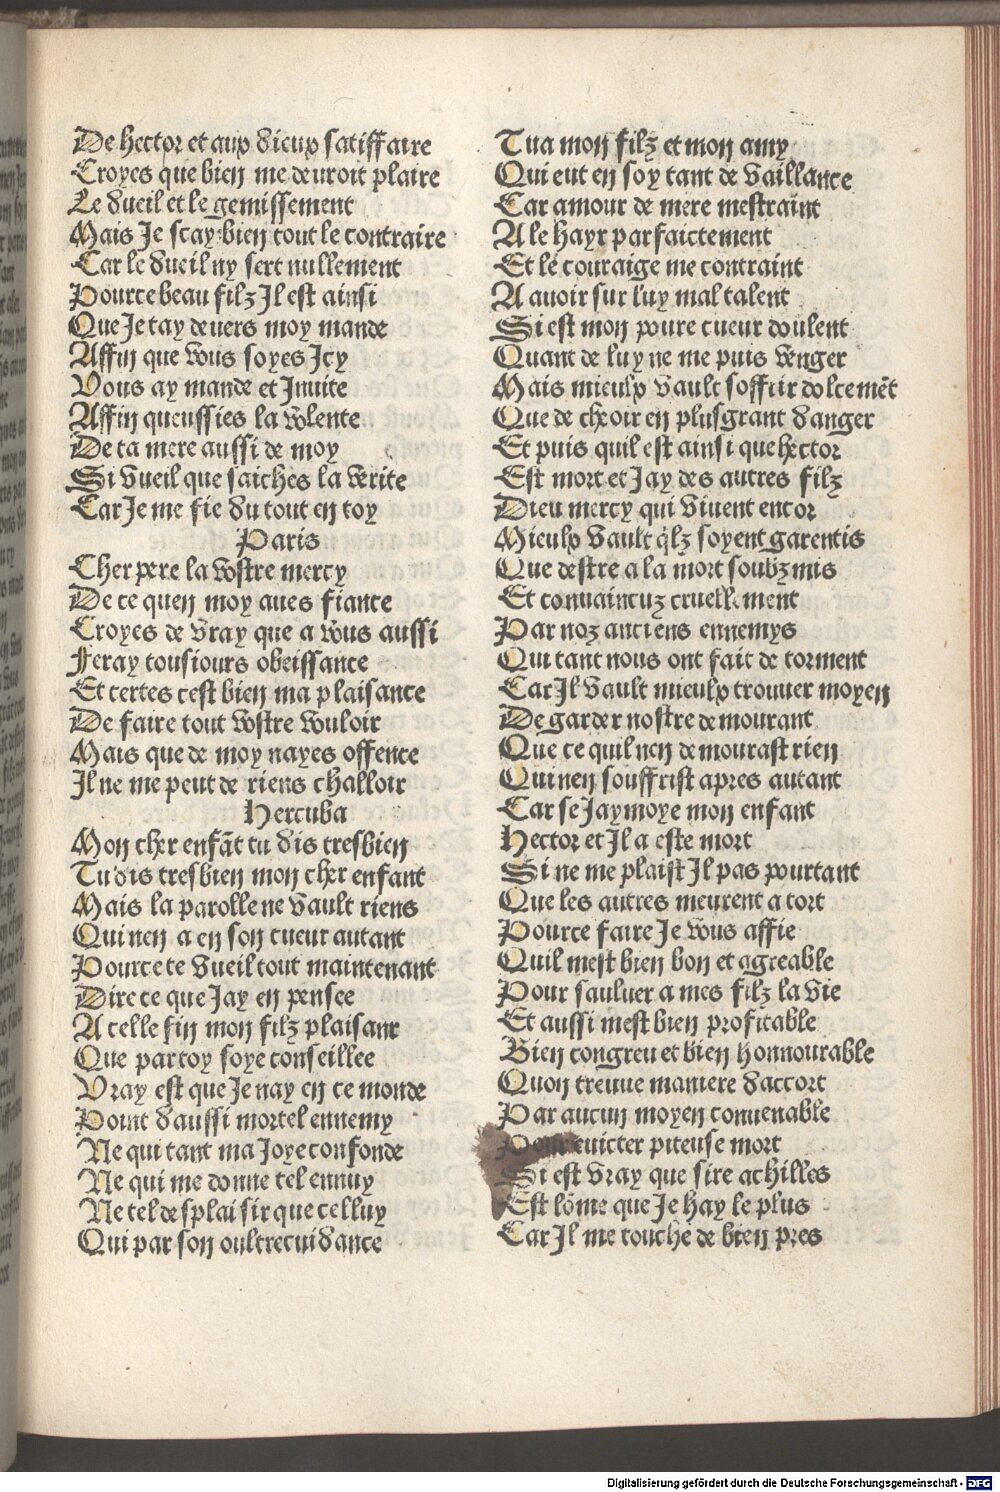 De hector et aux dieux satiffaire
Croyes que bien me deuroit plaire
Le dueil et le gemissement
Mais Je scay bien tout le contraire
Car le dueil ny sert nullement
Pource beau filz Il est ainsi
Que Je tay deuers moy mande
Affin que vous soyes Icy
Vous ay mande et Inuite
Affin queussies la volente
De ta mere aussi de moy
Si vueil que saiches la verite
Car Je me fie du tout en toy
Paris
Cher pere la vostre mercy
De ce quen moy aues fiance
Croyes de vray que a vous aussi
Feray tousiours obeissance
Et certes cest bien ma plaisance
De faire tout vostre vouloir
Mais que de moy nayes offence
Il ne me peut de riens challoir
Hercuba
Mon cher enfãt tu dis tresbien
Tu dis tresbien mon cher enfant
Mais la parolle ne vault riens
Qui nen a en son cueur autant
Pource te vueil tout maintenant
Dire ce que Jay en pensee
A celle fin mon filz plaisant
Que par toy soye conseillee
Vray est que Je nay en ce monde
Point daussi mortel ennemy
Ne qui tant ma Joye confonde
Ne qui me donne tel ennuy
Ne tel desplaisir que celluy
Qui par son oultrecuidance
Tua mon filz et mon amy
Qui eut en soy tant de vaillance
Car amour de mere mestraint
A le hayr parfaictement
Et le couraige me contraint
A auoir sur luy mal talent
Si est mon poure cueur doulent
Quant de luy ne me puis venger
Mais mieulx vault soffrir dolcemẽt
Que de cheoir en plusgrant danger
Et puis quil est ainsi que hector
Est mort et Jay des autres filz
Dieu mercy qui viuent encor
Mieulx vault q̃lz soyent garentis
Que destre a la mort soubz mis
Et conuaincuz cruellement
Par noz anciens ennemys
Qui tant nous ont fait de torment
Car Il vault mieulx trouuer moyen
De garder nostre demourant
Que ce quil nen demourast rien
Qui nen souffrist apres autant
Car se Jaymoye mon enfant
Hector et Il a este mort
Si ne me plaist Il pas pourtant
Que les autres meurent a tort
Pource faire Je vous affie
Quil mest bien bon et agreable
Pour sauluer a mes filz la vie
Et aussi mest bien profitable
Bien congreu et bien honnourable
Quon treuue maniere daccort
Par aucun moyen conuenable
Pour euicter piteuse mort
Si est vray que sire achilles
Est lõme que Je hay le plus
Car Il me touche de bien pres
Digitalisierung gefördert durch die Deutsche Forschungsgemeinschaft - DFG